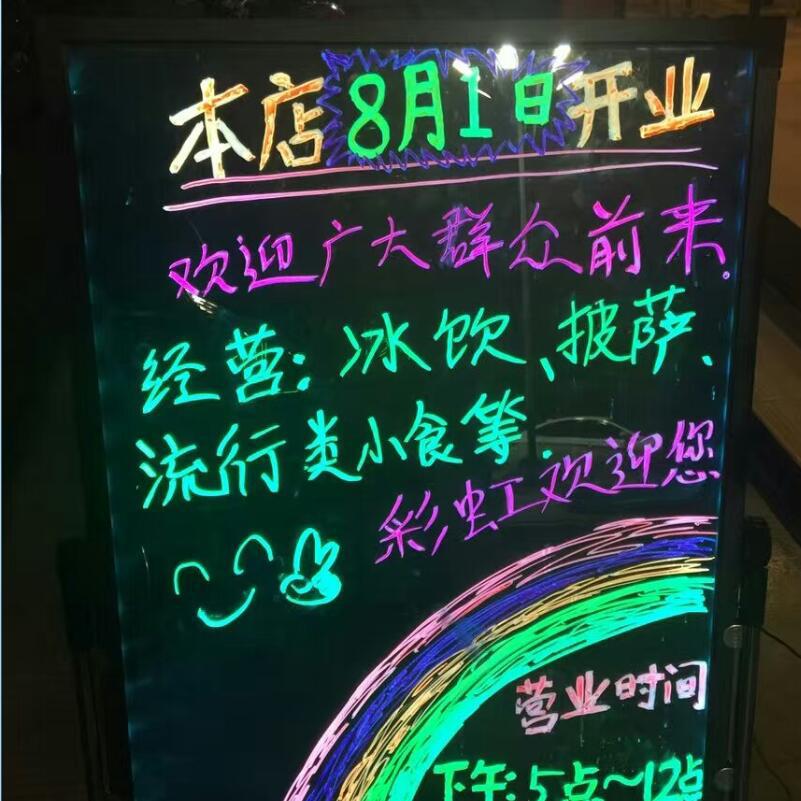 本店8月1日开业
欢迎广大群众前来.
经营:冰饮、披萨、
流行类小食等.
彩虹欢迎您
营业时间
下午:5点~12点